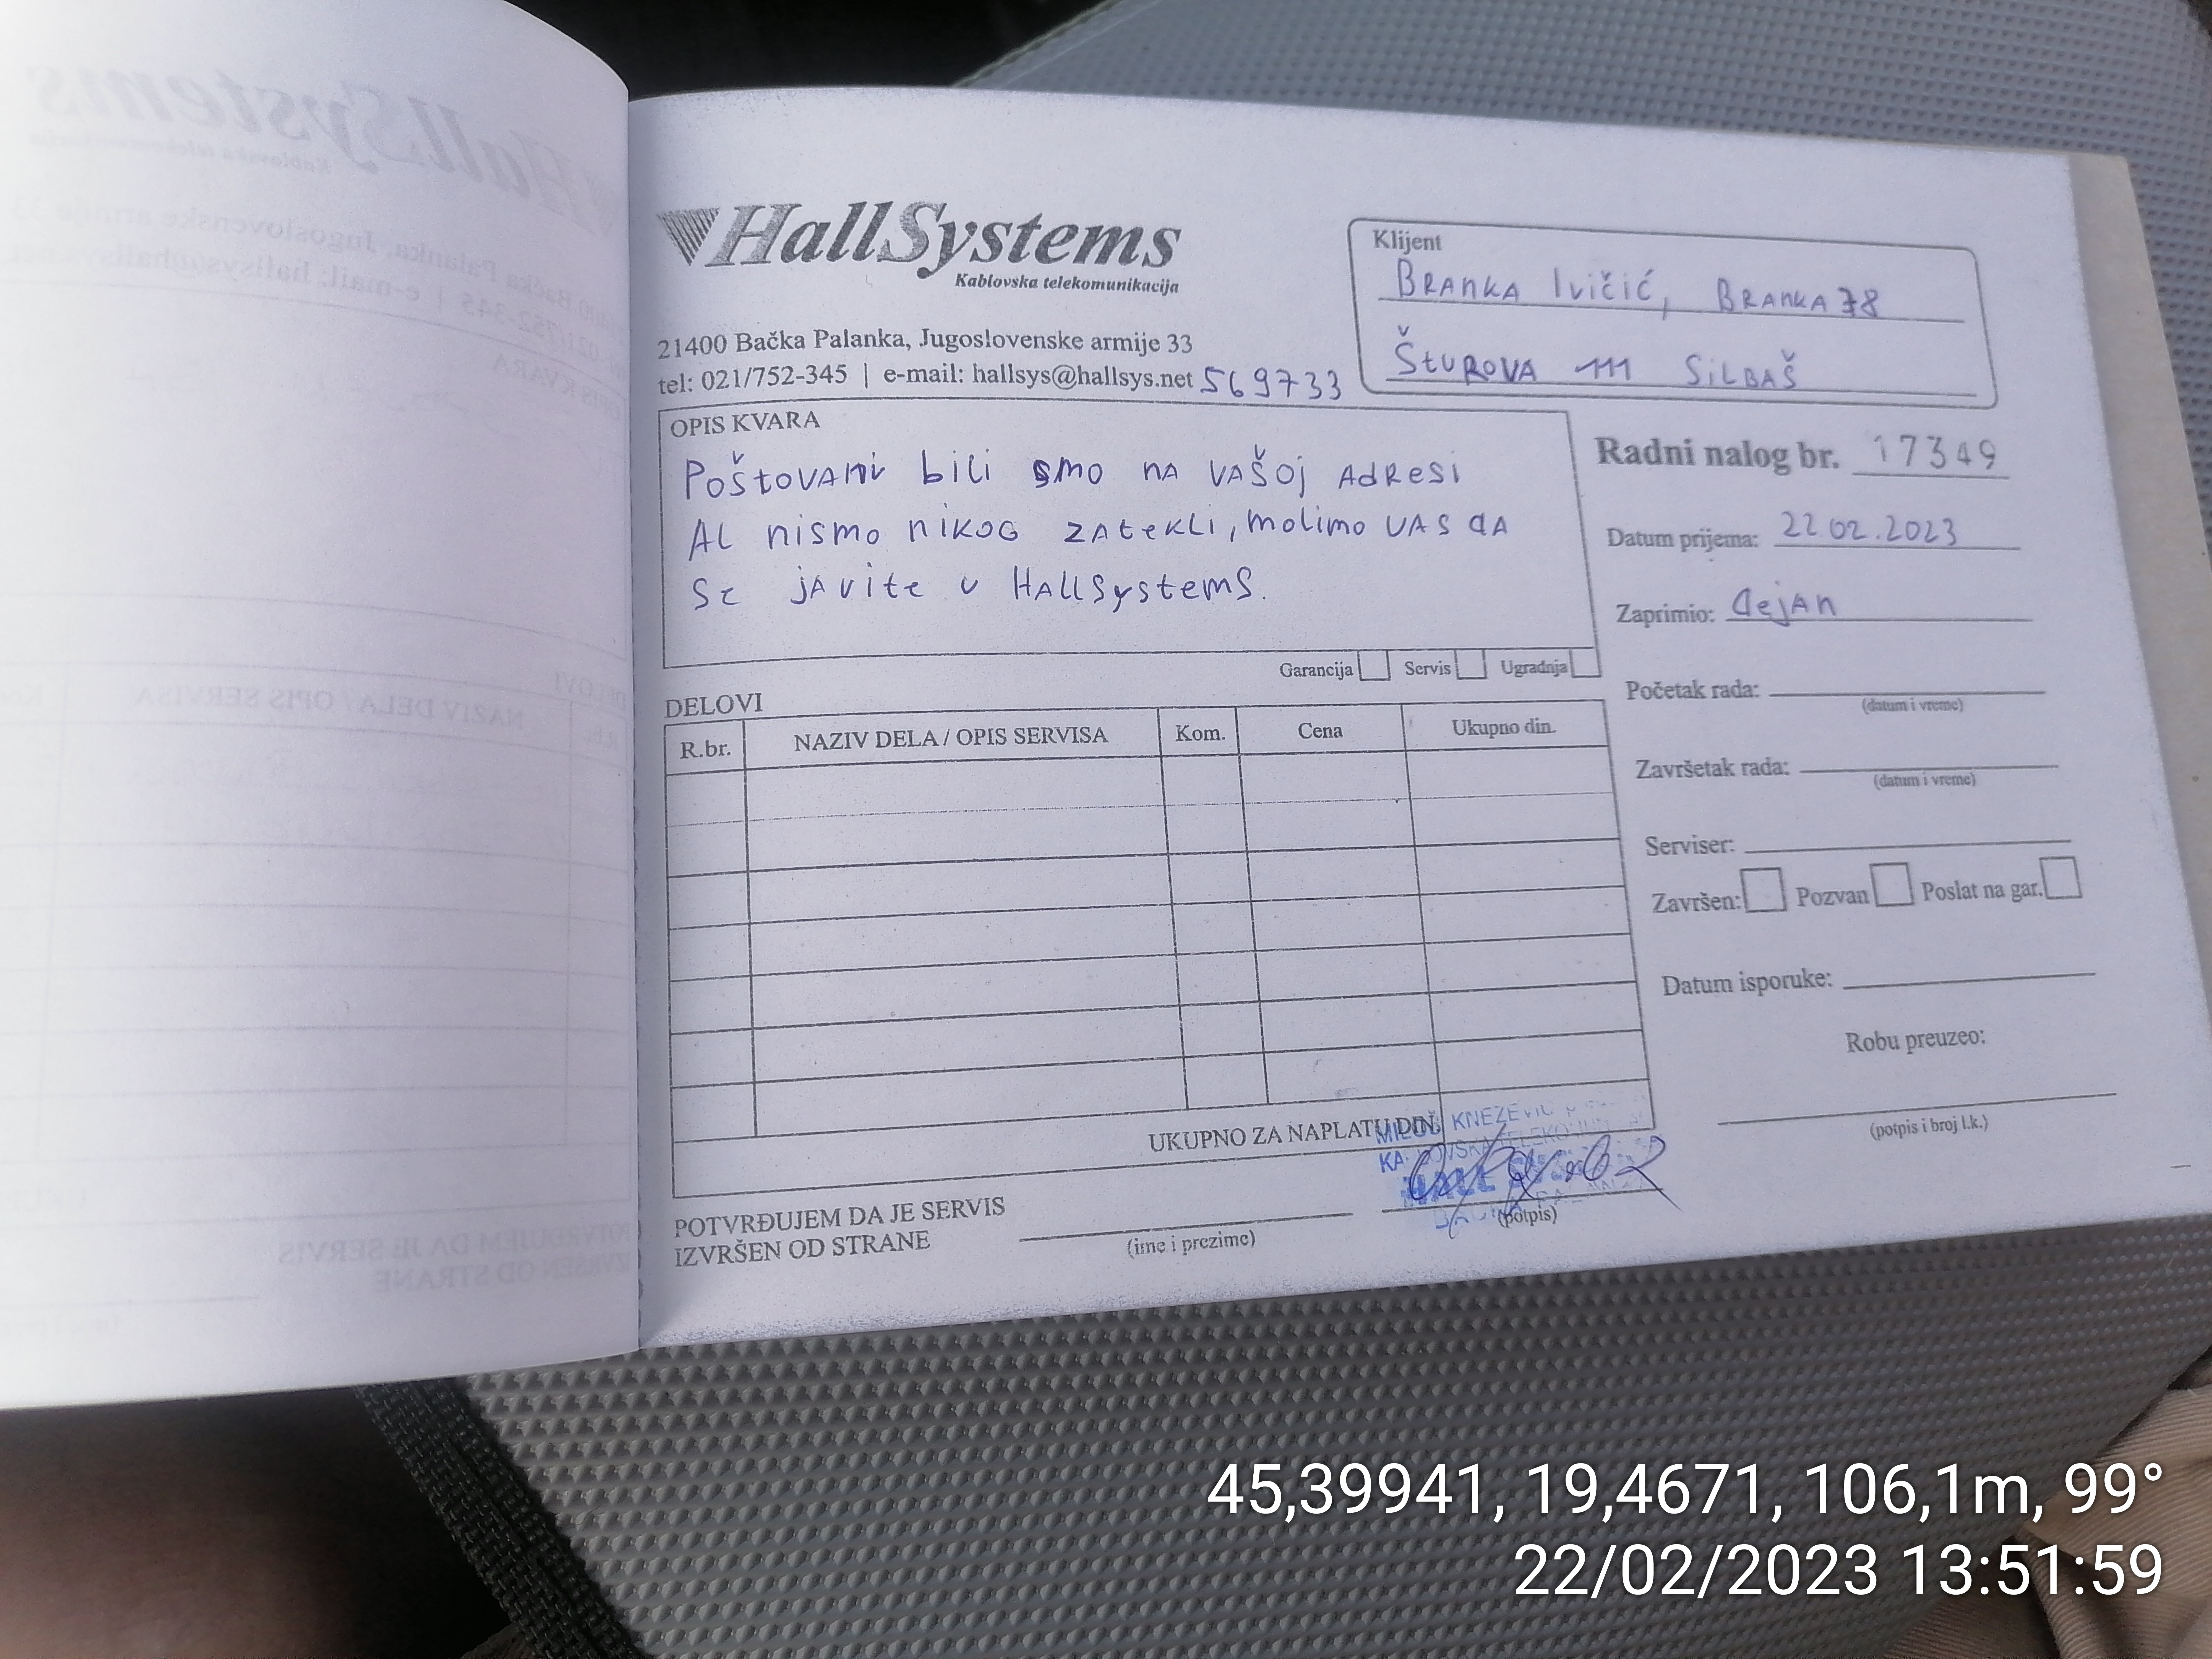 HallSystems
Kablovska telekomunikacija
21400 Bačka Palanka, Jugoslovenske armije 33
tel: 021/752-345 | e-mail: hallsys@hallsys.net 569733
Klijent
BRANKA Ivičić, BRANKA78
ŠTUROVA 111 SiLBAŠ
OPIS KVARA
Poštovani bili smo na vašoj adresi
Al nismo nikog zatekli, molimo vas da
se javite u HallSystems.
Garancija Servis Ugradnja
Radni nalog br. 17349
Datum prijema: 22 02.2023
Zaprimio: dejan
Početak rada:
(datum i vreme)
Završetak rada:
(datum i vreme)
Serviser:
Završen: Pozvan Poslat na gar.
Datum isporuke:
Robu preuzeo:
(potpis i broj l.k.)
DELOVI
R.br. NAZIV DELA / OPIS SERVISA Kom. Cena Ukupno din.
UKUPNO ZA NAPLATU DIN.
MILOŠ KNEZEVIC
HALL
POTVRĐUJEM DA JE SERVIS
IZVRŠEN OD STRANE
(ime i prezime)
(potpis)
45,39941, 19,4671, 106,1m, 99°
22/02/2023 13:51:59